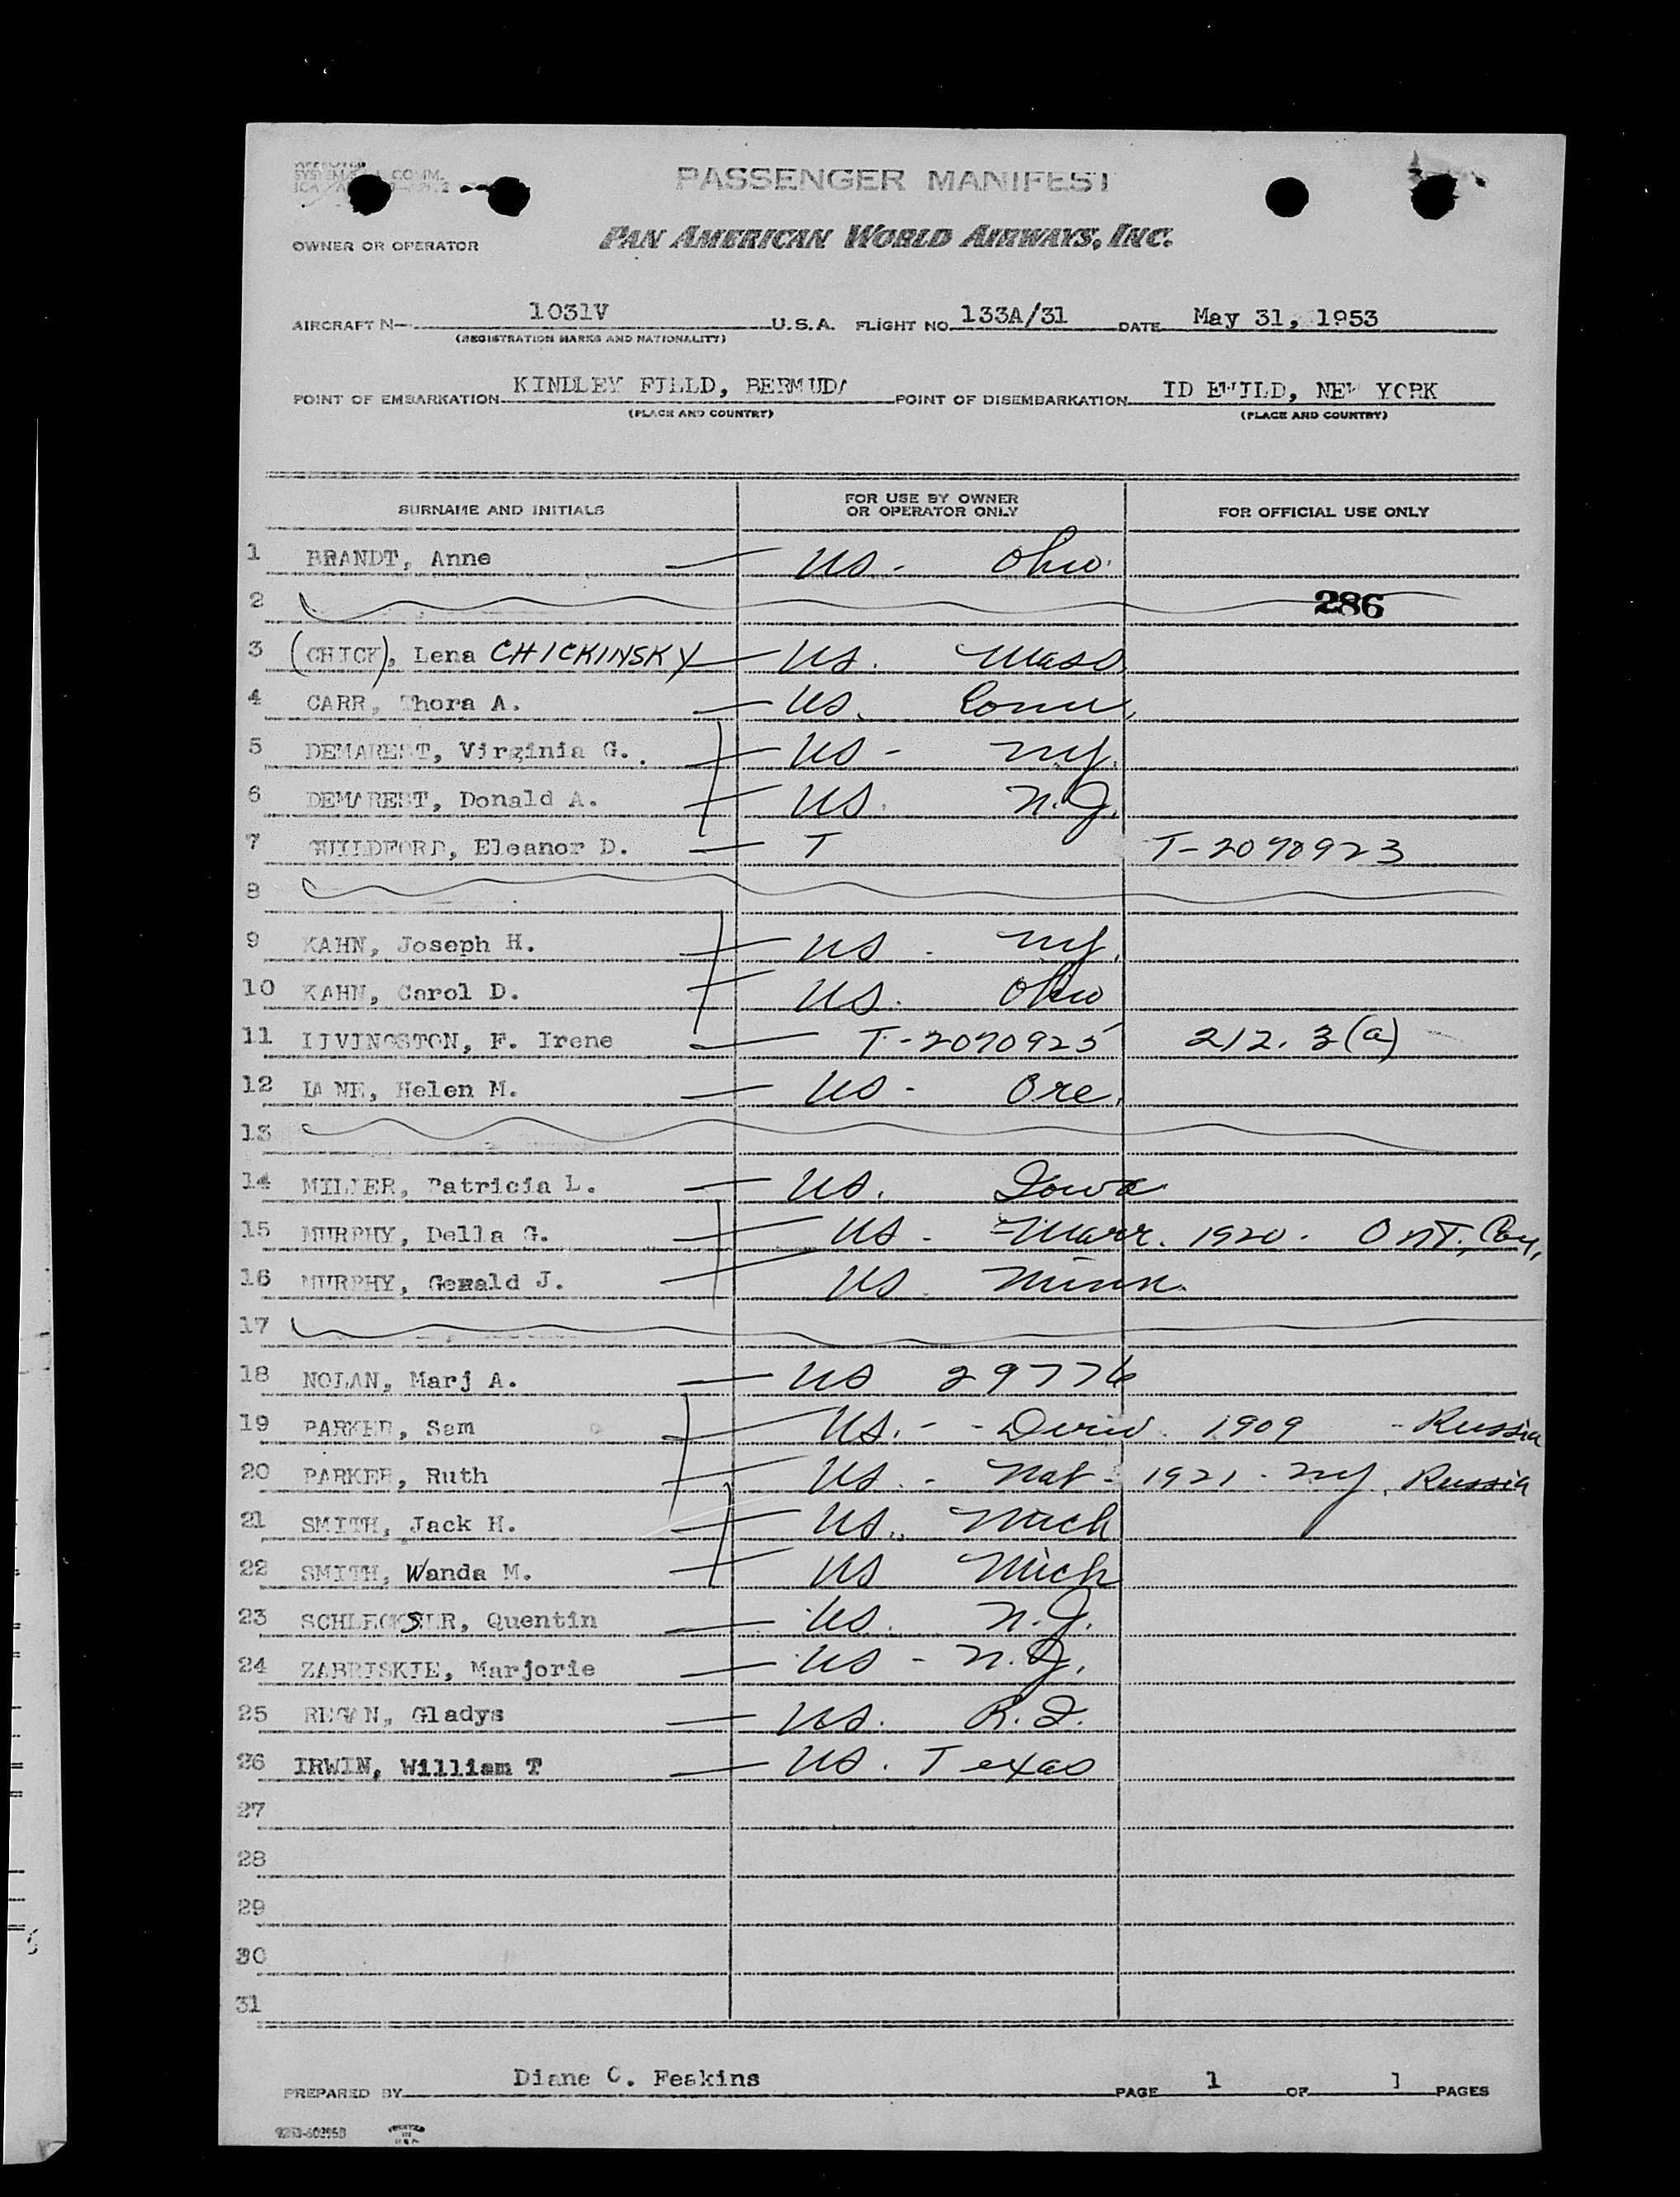 PASSENGER MANIFEST
OWNER OR OPERATOR PAN AMERICAN WORLD AIRWAYS, INC.
AIRCRAFT N- 1031V U.S.A. FLIGHT NO. 133A/31 DATE May 31, 1953
(REGISTRATION MARKS AND NATIONALITY)
POINT OF EMBARKATION KINDLEY FIELD, BERMUDA POINT OF DISEMBARKATION IDLEWILD, NEW YORK
(PLACE AND COUNTRY) (PLACE AND COUNTRY)
SURNAME AND INITIALS FOR USE BY OWNER OR OPERATOR ONLY FOR OFFICIAL USE ONLY
1 BRANDT, Anne — US - Ohio.
2 286
3 (CHICK), Lena CHICKINSKY — US. Mass
4 CARR, Thora A. — US. Conn.
5 DEMAREST, Virginia G. — US - N.Y.
6 DEMAREST, Donald A. — US. N.J.
7 GUILDFORD, Eleanor D. — T T-2070923
8
9 KAHN, Joseph H. — US - N.Y.
10 KAHN, Carol D. — US. Ohio
11 LIVINGSTON, F. Irene — T-2070925 212.3(a)
12 LANE, Helen M. — US - Ore.
13
14 MILLER, Patricia L. — US. Iowa
15 MURPHY, Della G. — US - Marr. 1920. Ont, Can,
16 MURPHY, Gerald J. — US. Minn.
17
18 NOLAN, Marj A. — US 29776
19 PARKER, Sam — US. - - Deriv. 1909 - Russia
20 PARKER, Ruth — US. - Nat - 1921 - N.Y. Russia
21 SMITH, Jack H. — US. Mich
22 SMITH, Wanda M. — US Mich
23 SCHLECKSER, Quentin — US. N.J.
24 ZABRISKIE, Marjorie — US - N.J.
25 REGAN, Gladys — US. R.I.
26 IRWIN, William T — US. Texas
27
28
29
30
31
PREPARED BY Diane C. Feakins PAGE 1 OF 1 PAGES